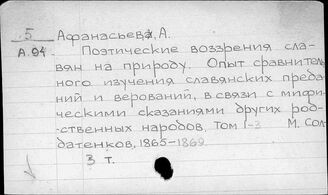 5 Афанасьев, А.
А.94 Поэтические воззрения сла-
вян на природу. Опыт сравнитель
ного изучения славянских преда
ний и верований, в связи с мифи-
ческими сказаниями других род-
ственных народов, Том 1-3 М. Сол-
датенков, 1865-1869
3 т.